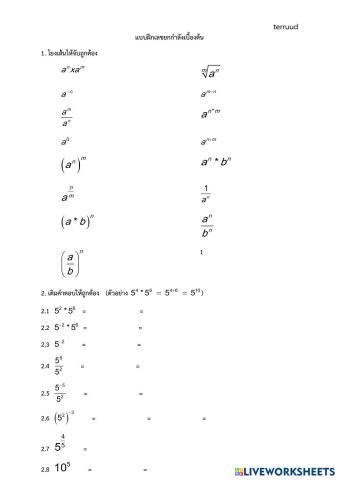 terruud
แบบฝึกเลขยกกำลังเบื้องต้น
1. โยงเส้นให้จับถูกต้อง
aⁿxaᵐ ᵐ√aⁿ
a⁻ⁿ aᵐ⁻ⁿ
aᵐ/aⁿ aⁿ*ᵐ
a⁰ aⁿ⁺ᵐ
(aⁿ)ᵐ aⁿ * bⁿ
a^(n/m) 1/aⁿ
(a * b)ⁿ aⁿ/bⁿ
(a/b)ⁿ 1
2. เติมคำตอบให้ถูกต้อง (ตัวอย่าง 5⁴ * 5⁶ = 5⁴⁺⁶ = 5¹⁰)
2.1 5² * 5⁶ = =
2.2 5⁻² * 5⁶ = =
2.3 5⁻² = =
2.4 5⁶/5² = =
2.5 5⁻⁵/5² = =
2.6 (5²)⁻³ = = =
2.7 5^(4/5) =
2.8 10⁵ = =
LIVEWORKSHEETS